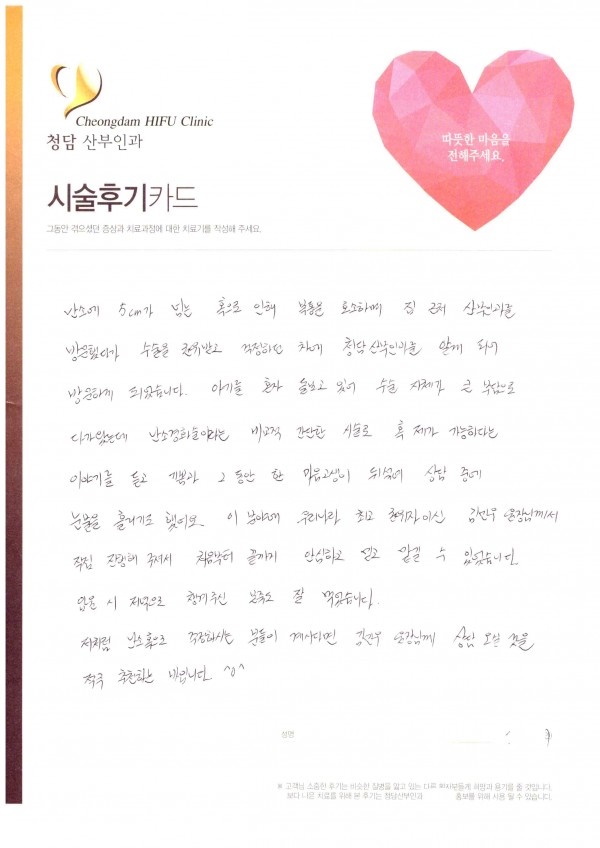 Cheongdam HIFU Clinic
청담 산부인과
따뜻한 마음을
전해주세요.
시술후기카드
그동안 겪으셨던 증상과 치료과정에 대한 치료기를 작성해 주세요.
난소에 5cm가 넘는 혹으로 인해 복통을 호소하며 집 근처 산부인과를
방문했다가 수술을 권유받고 걱정하던 차에 청담산부인과를 알게 되어
방문하게 되었습니다. 아기를 혼자 돌보고 있어 수술 자체가 큰 부담으로
다가왔는데 난소경화술이라는 비교적 간단한 시술로 혹 제거 가능하다는
이야기를 듣고 기쁨과 그동안 한 마음고생이 뒤섞여 상담 중에
눈물을 흘리기도 했어요. 이 분야에 우리나라 최고 권위자이신 김진우 원장님께서
직접 진행해 주셔서 처음부터 끝까지 안심하고 믿고 맡길 수 있었습니다.
입원 시 저녁으로 챙겨주신 본죽도 잘 먹었습니다.
저처럼 난소혹으로 걱정하시는 분들이 계시다면 김진우 원장님께 상담 오실 것을
적극 추천하는 바입니다. ^0^
성명
※ 고객님 소중한 후기는 비슷한 질병을 앓고 있는 다른 환자분들께 희망과 용기를 줄 것입니다.
보다 나은 치료를 위해 본 후기는 청담산부인과 홍보를 위해 사용 될 수 있습니다.